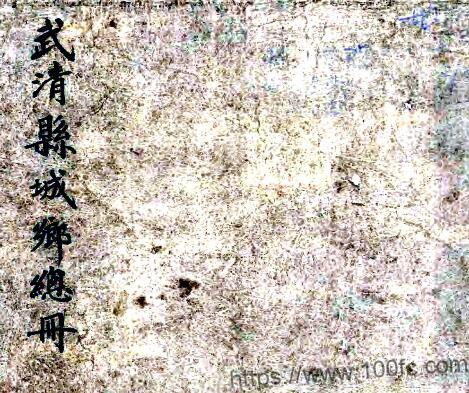 武清縣城鄉總冊
https://www.100fc.com